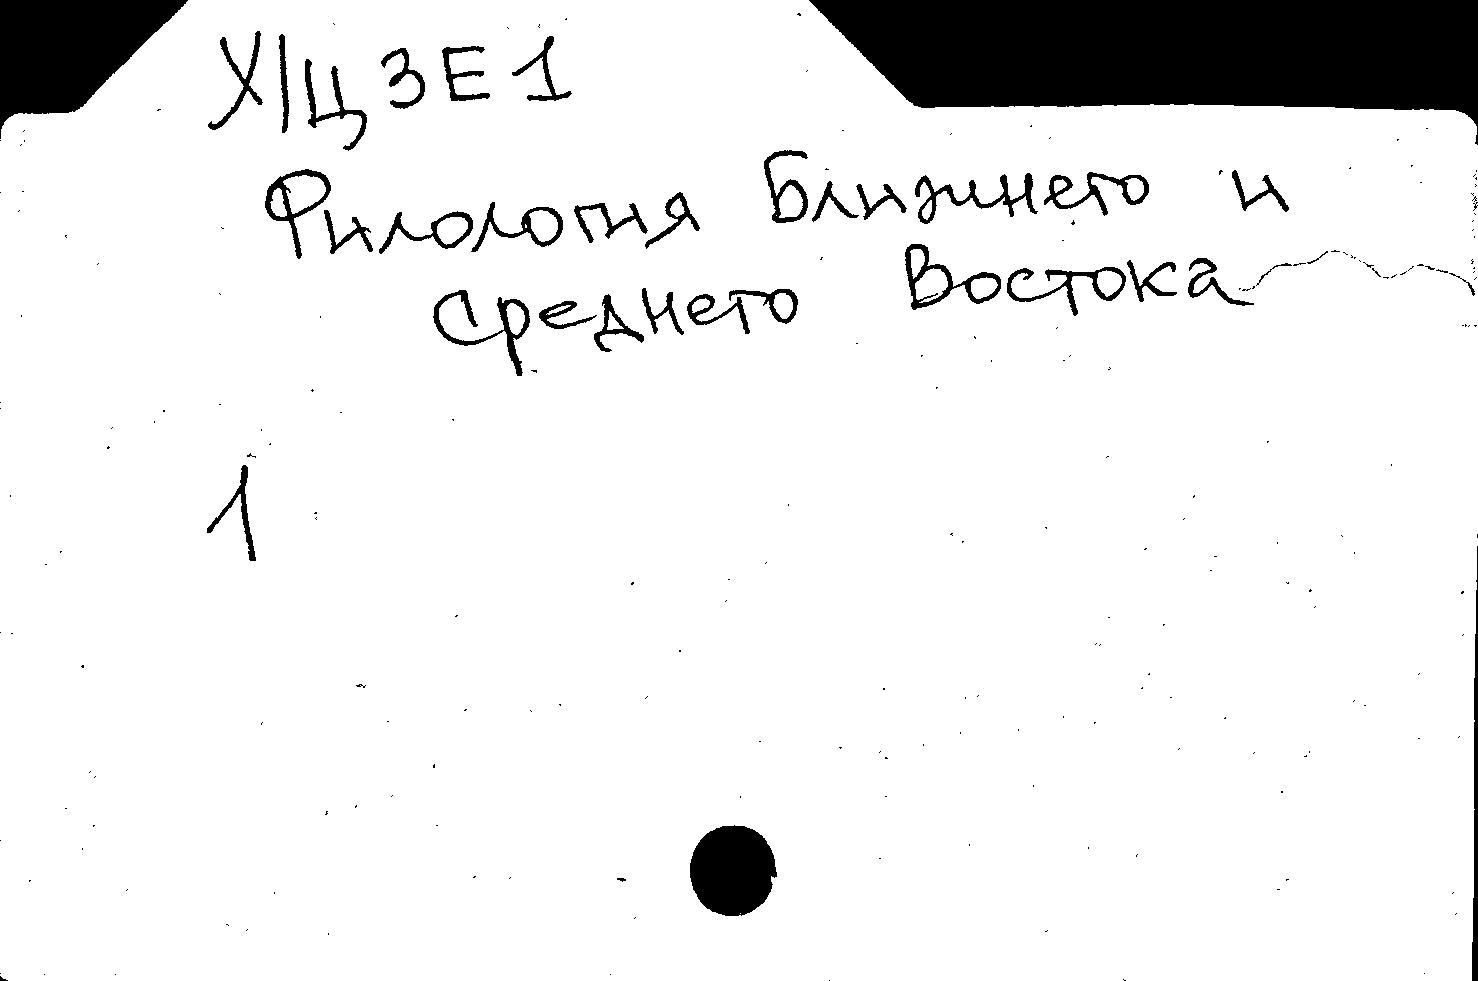 Х/Ц3Е1
Филология Ближнего и
Среднего Востока
1